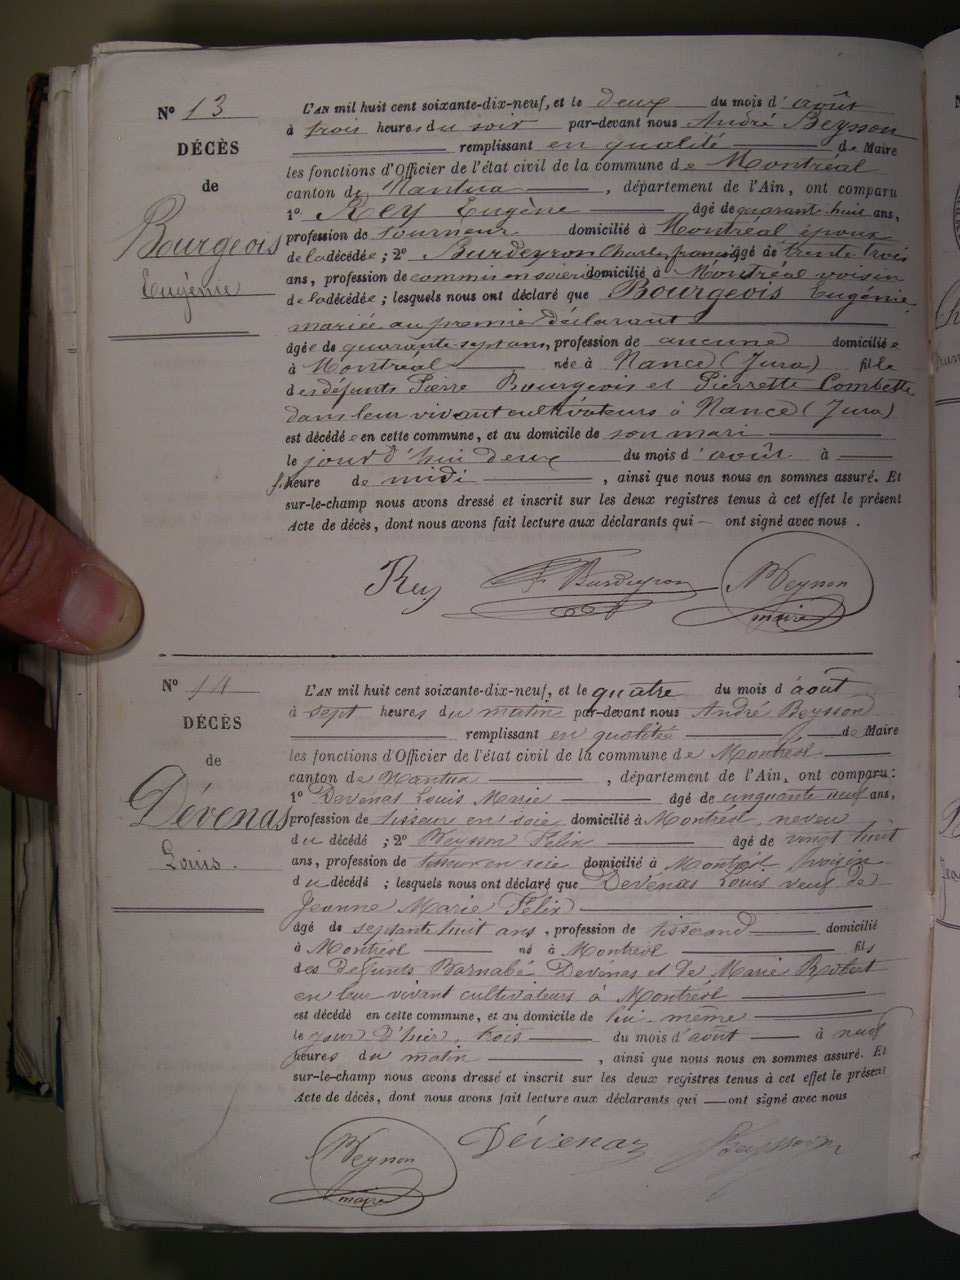 N° 13
DÉCÈS
de
Bourgeois
Eugénie
L'AN mil huit cent soixante-dix-neuf, et le deux du mois d'août
à trois heures du soir par-devant nous André Beysson
remplissant en qualité de Maire
les fonctions d'Officier de l'état civil de la commune de Montréal
canton de Nantua, département de l'Ain, ont comparu
1° Rey Eugène âgé de quarante huit ans,
profession de tourneur domicilié à Montréal époux
de la décédée ; 2° Burdeyron Charles françois âgé de trente trois
ans, profession de commis en soierie domicilié à Montréal voisin
de la décédée ; lesquels nous ont déclaré que Bourgeois Eugénie
mariée au premier déclarant
âgée de quarante sept ans, profession de aucune domiciliée
à Montréal née à Nance (Jura) fille
des défunts Pierre Bourgeois et Pierrette Combette
dans leur vivant cultivateurs à Nance (Jura)
est décédée en cette commune, et au domicile de son mari
le jourd'hui deux du mois d'août à
heure de midi, ainsi que nous nous en sommes assuré. Et
sur-le-champ nous avons dressé et inscrit sur les deux registres tenus à cet effet le présent
Acte de décès, dont nous avons fait lecture aux déclarants qui — ont signé avec nous.
Rey F Burdeyron Beysson
maire
N° 14
DÉCÈS
de
Dévenas
Louis.
L'AN mil huit cent soixante-dix-neuf, et le quatre du mois d'août
à sept heures du matin par-devant nous André Beysson
remplissant en qualité de Maire
les fonctions d'Officier de l'état civil de la commune de Montréal
canton de Nantua, département de l'Ain, ont comparu :
1° Devenas Louis Marie âgé de cinquante neuf ans,
profession de tisseur en soie domicilié à Montréal, neveu
du décédé ; 2° Félix âgé de vingt huit
ans, profession de tisseur en soie domicilié à Montréal voisin
du décédé ; lesquels nous ont déclaré que Devenas Louis veuf de
Jeanne Marie Félix
âgé de septante huit ans, profession de tisserand domicilié
à Montréal né à Montréal fils
des défunts Barnabé Dévenas et de Marie Robert
en leur vivant cultivateurs à Montréal
est décédé en cette commune, et au domicile de lui-même
le jour d'hier, trois du mois d'août à neuf
heures du matin, ainsi que nous nous en sommes assuré. Et
sur-le-champ nous avons dressé et inscrit sur les deux registres tenus à cet effet le présent
Acte de décès, dont nous avons fait lecture aux déclarants qui — ont signé avec nous
Beysson Dévenas
maire